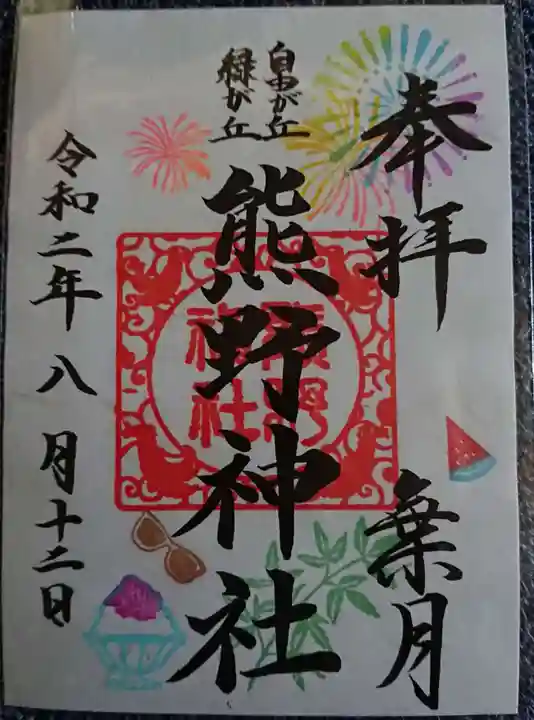 奉拝
葉月
自由が丘
緑が丘
熊野神社
熊野
神社
令和二年 八月十二日